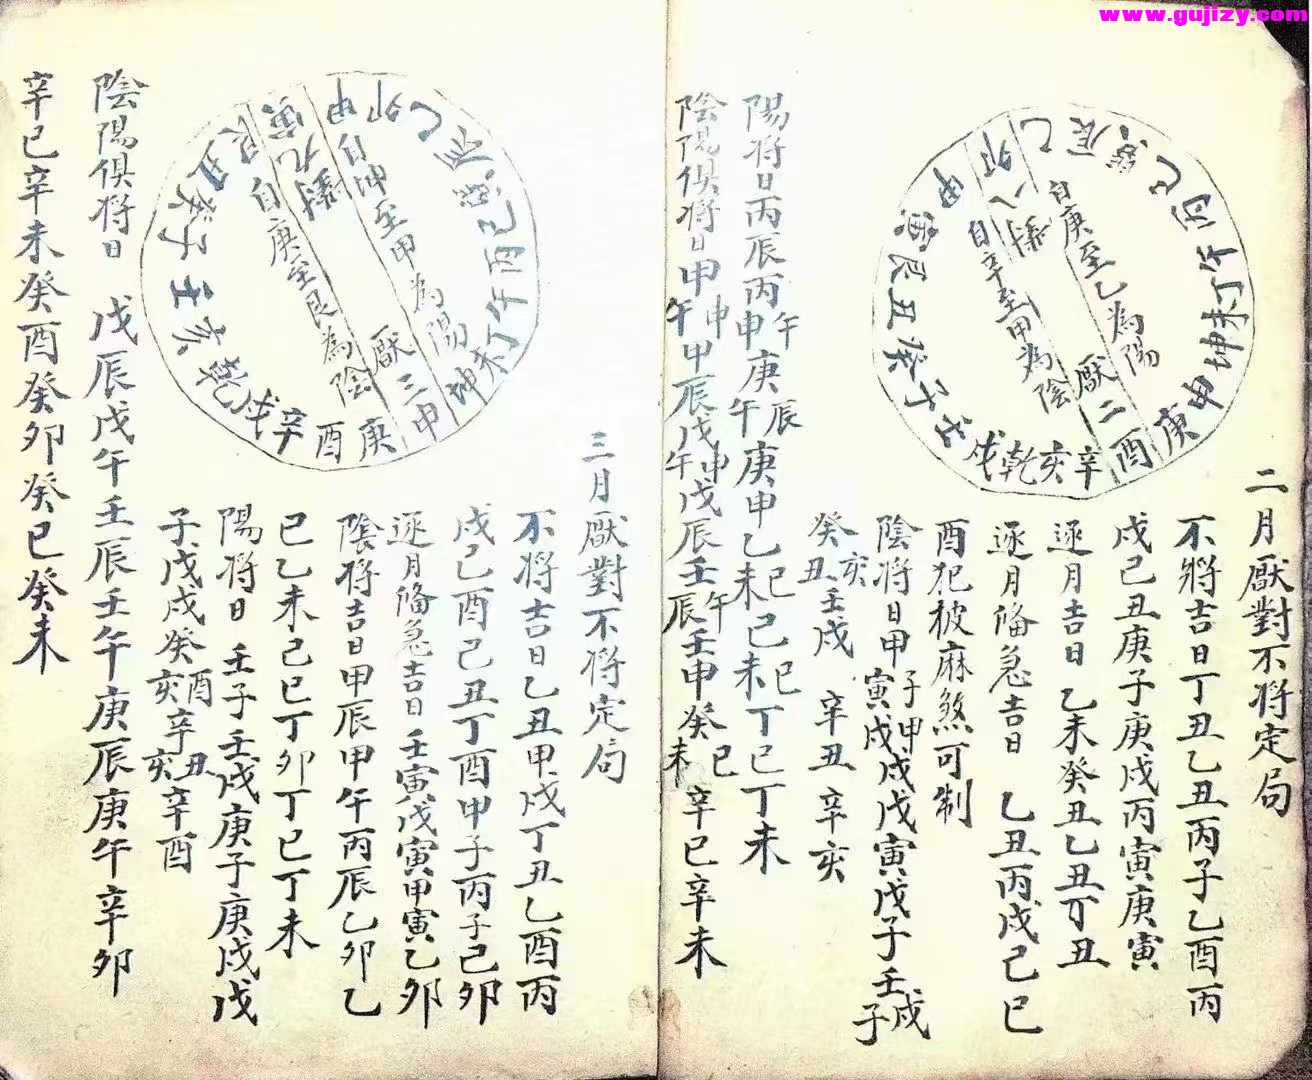 www.gujizy.com
二月厭對不将定局
不將吉日丁丑乙丑丙子乙酉丙
戌己丑庚子庚戌丙寅庚寅
逐月吉日乙未癸丑乙丑丁丑
逐月俻急吉日 乙丑丙戌己巳
酉犯披麻煞可制
陰将日甲子寅甲戌戌戊寅戊子壬子戌
癸丑亥壬戌 辛丑 辛亥
陽将日丙辰丙午申庚午辰庚申乙未巳己未巳丁巳丁未
陰陽俱将日甲午申甲辰戊午申戊辰壬辰午壬申癸未巳辛巳辛未
乙辰巽巳丙午丁未坤申庚酉辛亥乾戌壬子癸丑艮寅甲卯
八壻
自庚至乙為陽
自辛至甲為陰
厭二
三月厭對不将定局
不将吉日乙丑甲戌丁丑乙酉丙
戌己酉己丑丁酉甲子丙子己卯
逐月俻急吉日壬寅戊寅甲寅乙卯
隂将吉日甲辰甲午丙辰乙卯乙
巳乙未己巳丁卯丁巳丁未
陽将日 壬子壬戌庚子庚戌戊
子戊戌癸亥酉辛亥丑辛酉
陰陽俱将日 戊辰戊午壬辰壬午庚辰庚午辛卯
辛巳辛未癸酉癸卯癸巳癸未
甲卯乙辰巽巳丙午丁未坤申庚酉辛戌乾亥壬子癸丑艮寅
九壻
自坤至甲為陽
自庚至艮為陰
厭三